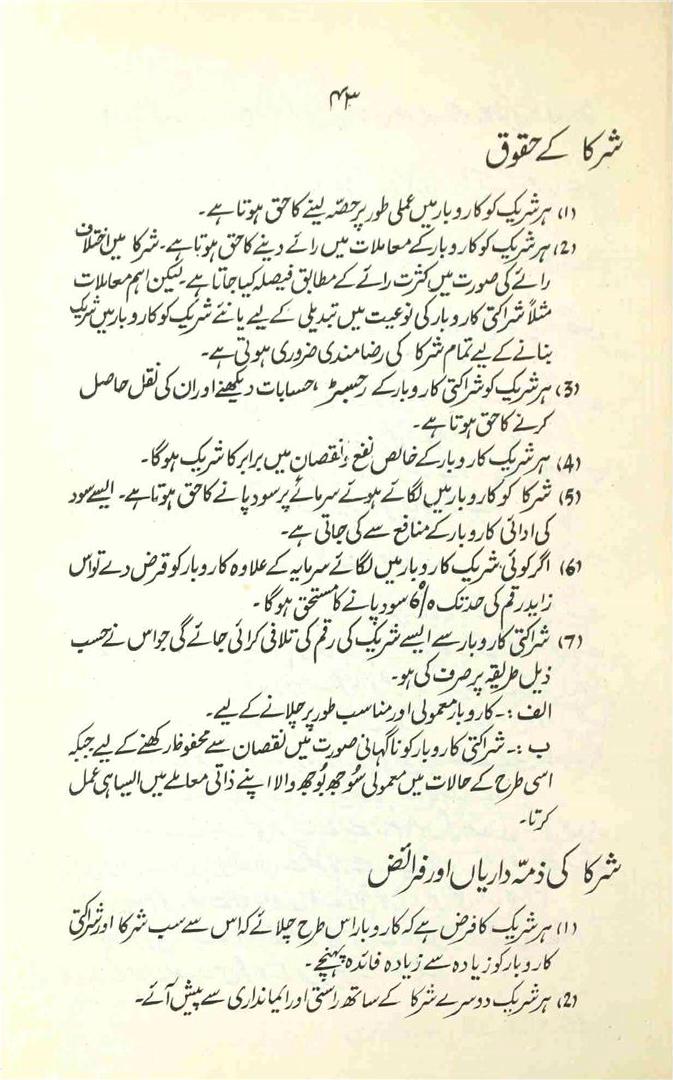 ۴۳
شرکا کے حقوق
(1) ہر شریک کو کاروبار میں عملی طور پر حصّہ لینے کا حق ہوتا ہے۔
(2) ہر شریک کو کاروبار کے معاملات میں رائے دینے کا حق ہوتا ہے۔ شرکا میں اختلاف
رائے کی صورت میں کثرت رائے کے مطابق فیصلہ کیا جاتا ہے۔ لیکن اہم معاملات
مثلاً شراکتی کاروبار کی نوعیت میں تبدیلی کے لیے یا نئے شریک کو کاروبار میں شریک
بنانے کے لیے تمام شرکا کی رضامندی ضروری ہوتی ہے۔
(3) ہر شریک کو شراکتی کاروبار کے رجسٹر، حسابات دیکھنے اور ان کی نقل حاصل
کرنے کا حق ہوتا ہے۔
(4) ہر شریک کاروبار کے خالص نفع و نقصان میں برابر کا شریک ہوگا۔
(5) شرکا کو کاروبار میں لگائے ہوئے سرمائے پر سود پانے کا حق ہوتا ہے۔ ایسے سود
کی ادائی کاروبار کے منافع سے کی جاتی ہے۔
(6) اگر کوئی شریک کاروبار میں لگائے سرمایہ کے علاوہ کاروبار کو قرض دے تو اس
زاید رقم کی حد تک 6% سود پانے کا مستحق ہوگا۔
(7) شراکتی کاروبار سے ایسے شریک کی رقم کی تلافی کرائی جائے گی جو اس نے حسب
ذیل طریقہ پر صرف کی ہو۔
الف :۔ کاروبار معمولی اور مناسب طور پر چلانے کے لیے۔
ب :۔ شراکتی کاروبار کو ناگہانی صورت میں نقصان سے محفوظ رکھنے کے لیے جبکہ
اسی طرح کے حالات میں معمولی سُوجھ بُوجھ والا اپنے ذاتی معاملے میں ایسا ہی عمل
کرتا۔
شرکا کی ذمّہ داریاں اور فرائض
(1) ہر شریک کا فرض ہے کہ کاروبار اس طرح چلائے کہ اس سے سب شرکا اور شراکتی
کاروبار کو زیادہ سے زیادہ فائدہ پہنچے۔
(2) ہر شریک دوسرے شرکا کے ساتھ راستی اور ایمانداری سے پیش آئے۔